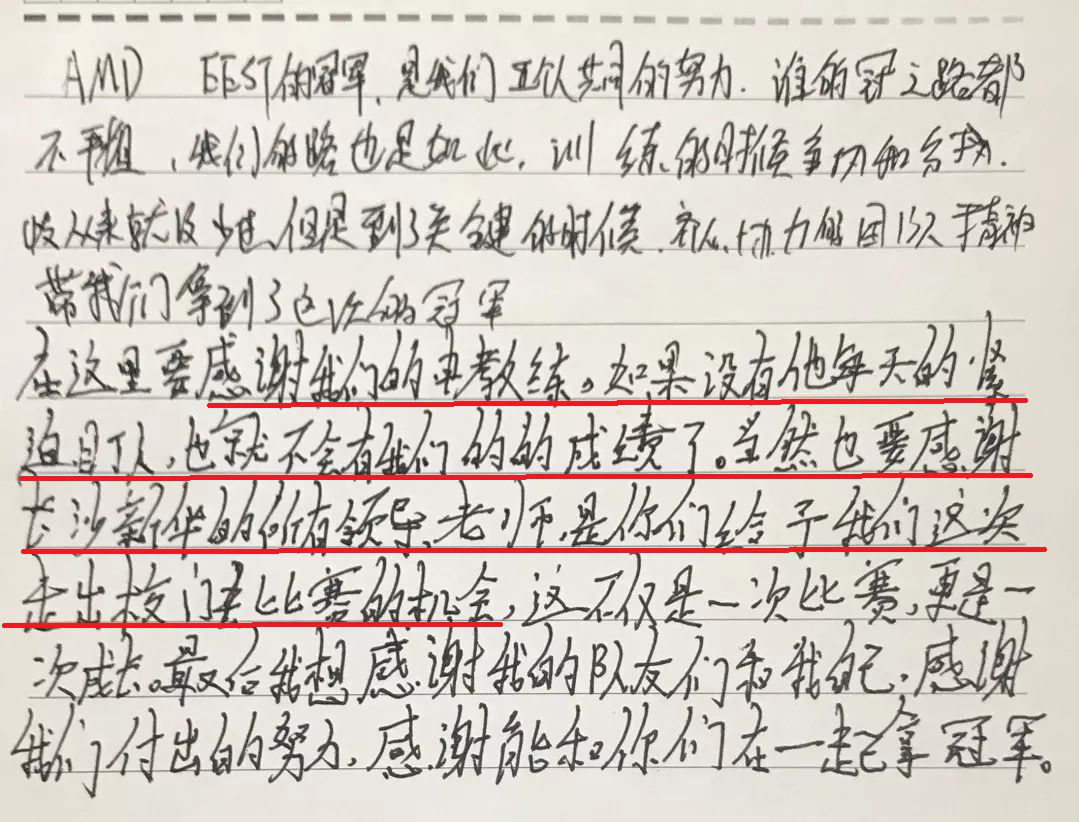 AMD EEST的冠军，是我们五个人共同的努力．谁的冠之路都
不平坦，我们的路也是如此，训练的时候争切和分歧．
歧从来就没少过，但是到了关键的时候，齐心协力的团队精神
带我们拿到了这次的冠军
在这里要感谢我们的申教练。如果没有他每天的紧
迫盯人，也就不会有我们的的成绩了。当然也要感谢
长沙新华的所有领导、老师，是你们给予我们这次
走出校门去比赛的机会，这不仅是一次比赛，更是一
次成长。最后我想感谢我的队友们和我自己，感谢
我们付出的努力，感谢能和你们在一起拿冠军。